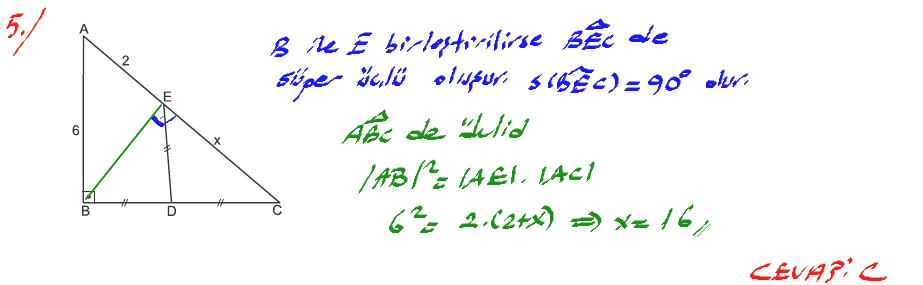 5./
A
2
E
6
x
B
D
C
B ile E birleştirilirse BEC de
süper üçlü oluşur. s(BEC) = 90° olur.
ABC de öklid
|AB|² = |AE|. |AC|
6² = 2.(2+x) ⇒ x = 16
CEVAP: C